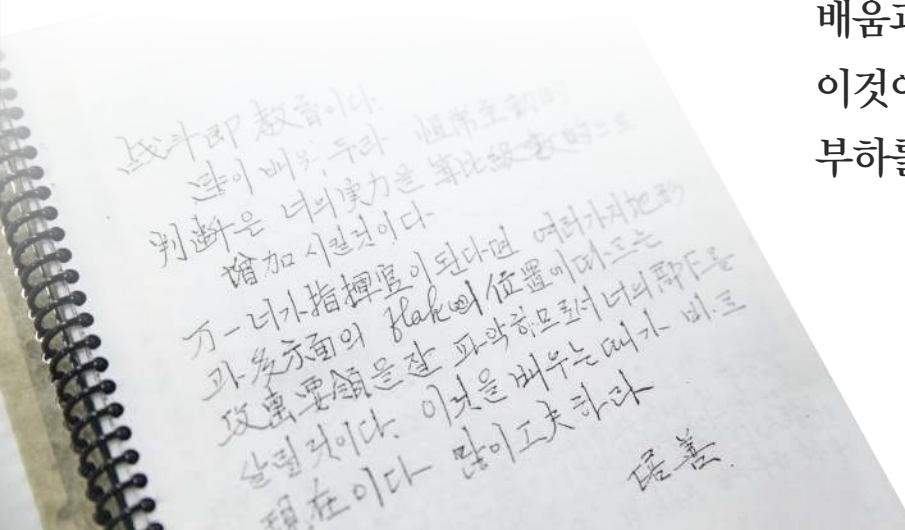 战斗即 教育이다.
많이 배워 두라 恒常 主動的
判断은 너의 実力을 等比級数的으로
增加 시킬것이다
万一 너가 指揮官이 된다면 여러가지 地形
과 多方面의 flak의 位置 에따르는
攻擊要領을 잘 파악하므로서 너의 部下를
살릴것이다. 이것을 배우는 때가 바로
現在이다 많이 工夫하라
배움과
이것이
부하를